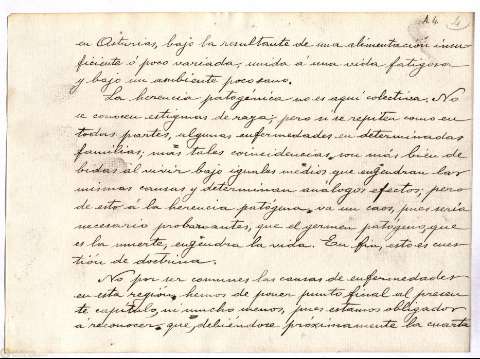 A4 4
en Asturias, bajo la resultante de una alimentación insu-
ficiente ó poco variada, unida a una vida fatigosa
y bajo un ambiente poco sano.
La herencia patogénica no es aquí colectiva. No
se conocen estigmas de raza; pero si se repiten como en
todas partes, algunas enfermedades en determinadas
familias; más tales coincidencias, son más bien de-
bidas al vivir bajo iguales medios que engendran las
mismas causas y determinan análogos efectos; pero
de esto á la herencia patógena, va un caos, pues sería
necesario probar antes, que el germen patógeno, que
es la muerte, engendra la vida. En fin, esto es cues-
tión de doctrina.
No por ser comunes las causas de enfermedades
en esta región, hemos de poner punto final al presen-
te capítulo, ni mucho menos, pues estamos obligados
á reconocer que, debiéndose proximamente la cuarta